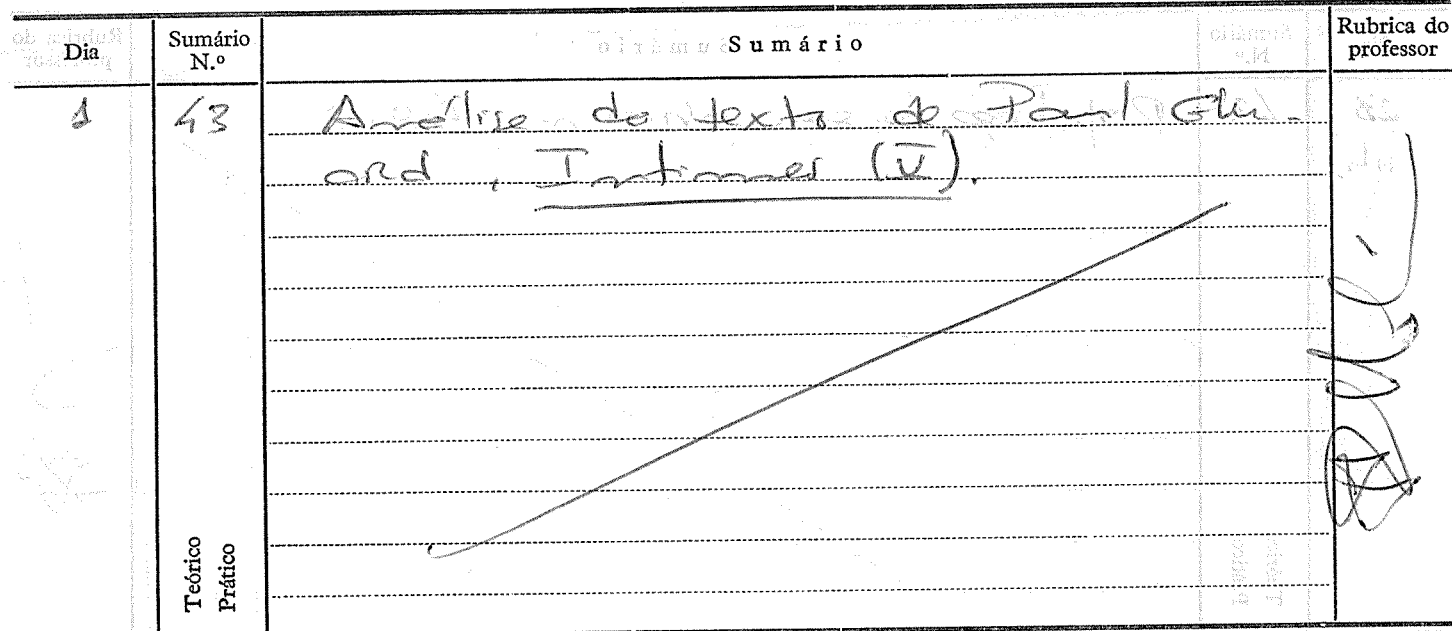 Dia
Sumário N.º
Sumário
Rubrica do professor
1
43
Análise do texto de Paul Elu-
ard, Intimes (V).
Teórico
Prático